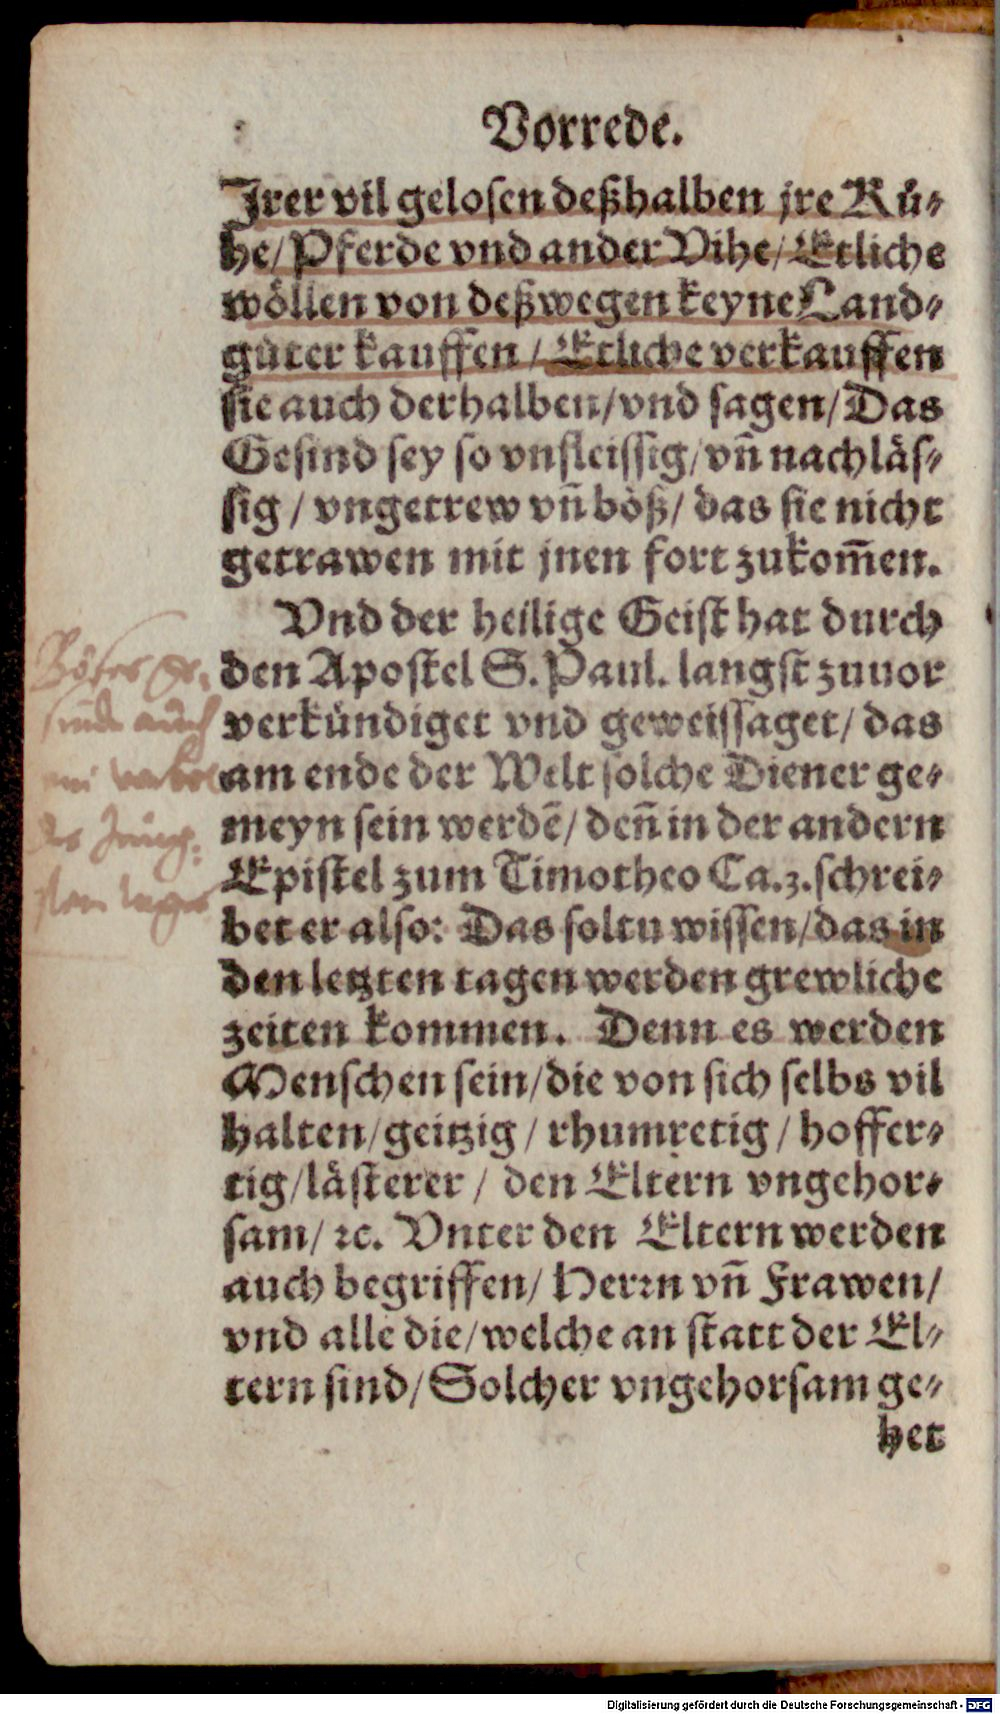 Vorrede.
Jrer vil gelosen deßhalben jre Kuͤ⸗
he/ Pferde vnd ander Vihe/ Etliche
woͤllen von deßwegen keyne Land⸗
guͤter kauffen / Etliche verkauffen
sie auch derhalben/ vnd sagen/ Das
Gesind sey so vnfleissig/ vn̄ nachlaͤs⸗
sig / vngetrew vn̄ boͤß/ das sie nicht
getrawen mit jnen fort zukom̄en.
Vnd der heilige Geist hat durch
den Apostel S. Paul. langst zuuor
verkuͤndiget vnd geweissaget/ das
am ende der Welt solche Diener ge⸗
meyn sein werdē/ den̄ in der andern
Epistel zum Timotheo Ca. 3. schrei⸗
bet er also: Das soltu wissen/ das in
den letzten tagen werden grewliche
zeiten kommen. Denn es werden
Menschen sein/ die von sich selbs vil
halten/ geitzig / rhumretig / hoffer⸗
tig/ laͤsterer / den Eltern vngehor⸗
sam/ ꝛc. Vnter den Eltern werden
auch begriffen/ Herꝛn vn̄ Frawen/
vnd alle die/ welche an statt der El⸗
tern sind/ Solcher vngehorsam ge⸗
het
Böses Ge⸗
sinde auch
ein
des Jüng⸗
sten tages
Digitalisierung gefördert durch die Deutsche Forschungsgemeinschaft - DFG